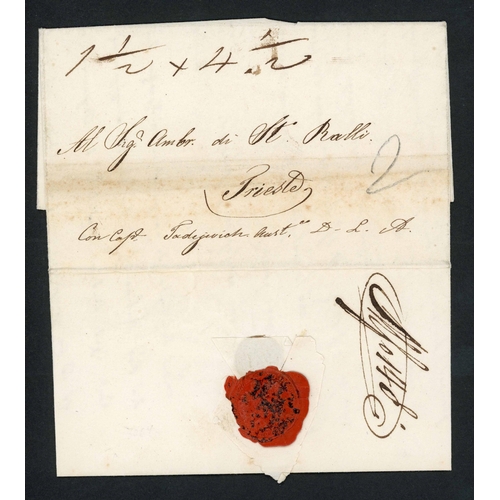 1 1/2 x 4 1/2
Al Sigr Ambr. di St. Ralli.
Trieste
2
Con Capt. Tadejevich Aust.co D. L. A.